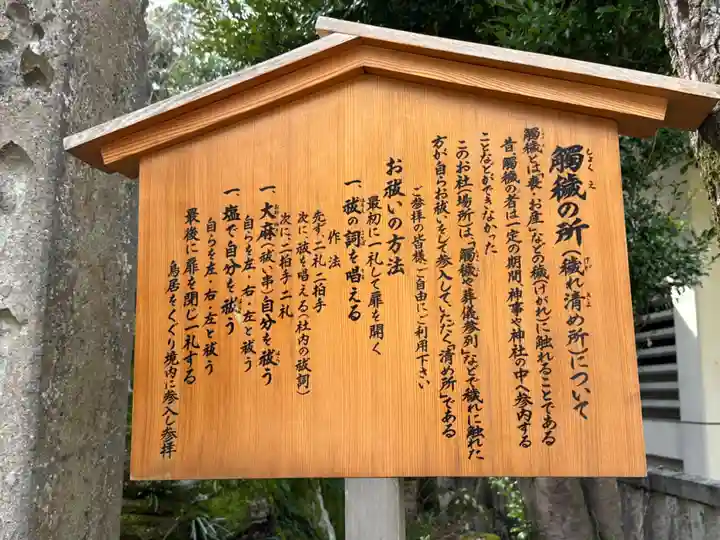 觸穢の所(穢れ清め所)について
觸穢とは、喪・お産、などの穢(けがれ)に触れることである
昔、觸穢の者は一定の期間、神事や神社の中へ参内する
ことなどができなかった
このお社(場所)は、「觸穢や葬儀参列」などで穢れに触れた
方が自らお祓いをして参入していただく「清め所」である
ご参拝の皆様、ご自由にご利用下さい
お祓いの方法
一、祓の詞を唱える
最初に一礼して扉を開く
作法
先ず、二礼二拍手
次に、祓を唱える(社内の祓詞)
次に、二拍手二礼
一、大麻(祓い串)自分を祓う
自らを左・右・左と祓う
一、塩で自分を祓う
自らを左・右・左と祓う
最後に扉を閉じ一礼する
鳥居をくぐり境内に参入し参拝